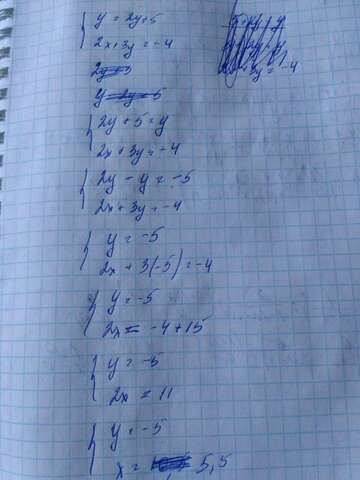 y = 2y+5
2x+3y = -4
2y + 5 = y
2x + 3y = -4
2y - y = -5
2x + 3y = -4
y = -5
2x + 3(-5) = -4
y = -5
2x = -4+15
y = -5
2x = 11
y = -5
x = 5,5